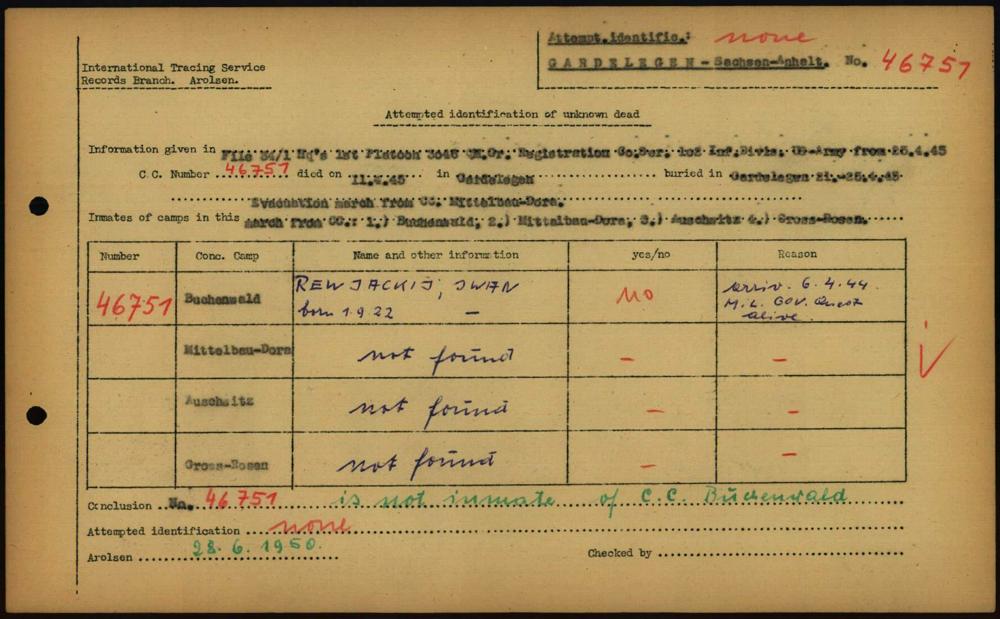 Attempt.identific.: none
GARDELEGEN - Sachsen-Anhalt. No. 46751
International Tracing Service
Records Branch. Arolsen.
Attempted identification of unknown dead
Information given in File 54/1 Hq's 1st Platoon 3046 QM.Gr. Registration Co.Ser. 102 Inf.Divis. US-Army from 25.4.45
C.C. Number 46751 died on 11.4.45 in Gardelegen buried in Gardelegen 21.-25.4.45
Evacuation march from CC. Mittelbau-Dora.
Inmates of camps in this march from CC.: 1.) Buchenwald, 2.) Mittelbau-Dora, 3.) Auschwitz 4.) Gross-Rosen.
Number Conc. Camp Name and other information yes/no Reason
46751 Buchenwald REWJACKIJ, IWAN born 1.9.22 — no arriv. 6.4.44. Mil. GOV. Quest alive.
Mittelbau-Dora not found — —
Auschwitz not found — —
Gross-Rosen not found — —
Conclusion No. 46751 is not inmate of C.C. Buchenwald
Attempted identification none
Arolsen 28.6.1950. Checked by